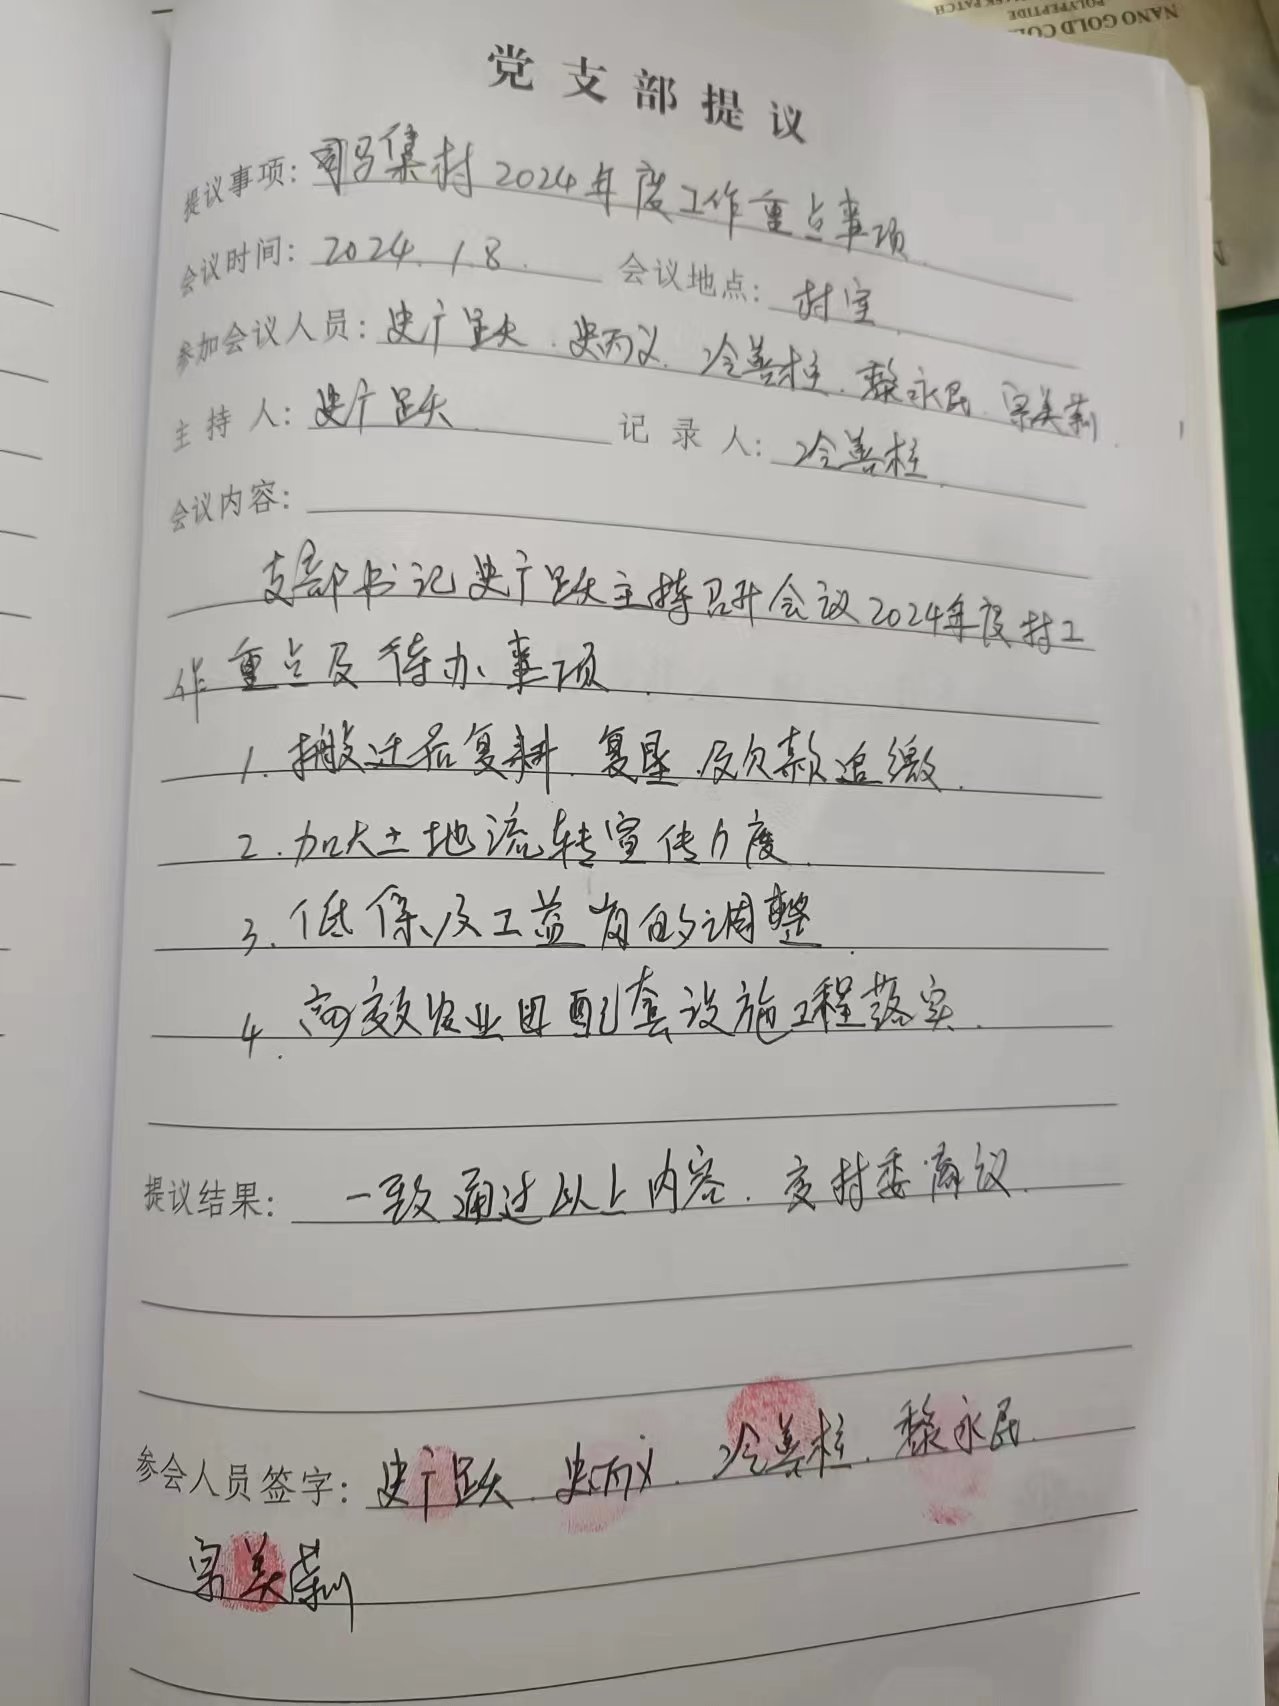 NANO GOLD CO
POLYPEPTIDE
MASK PATCH
党支部提议
提议事项：司马集村2024年度工作重点事项.
会议时间：2024.1.8. 会议地点：村室.
参加会议人员：史广跃.史丙义.冷善柱.黎永民.宗美莉.
主持人：史广跃. 记录人：冷善柱.
会议内容：
支部书记史广跃主持召开会议2024年度村工
作重点及待办事项.
1.搬迁后复耕.复垦.及欠款追缴.
2.加大土地流转宣传力度.
3.低保及工益岗的调整.
4.高效农业田配套设施工程落实.
提议结果：一致通过以上内容.交村委商议.
参会人员签字：史广跃.史丙义.冷善柱.黎永民.
宗美莉